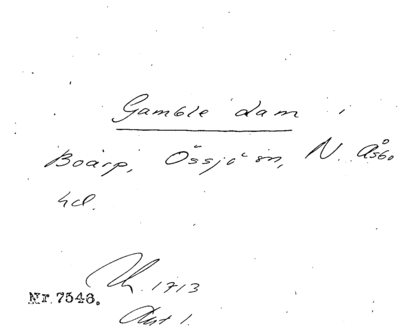 Gamble dam i
Boarp, Össjö sn, N. Åsbo
hd.
Nr. 7548. 1713
Akt 1.